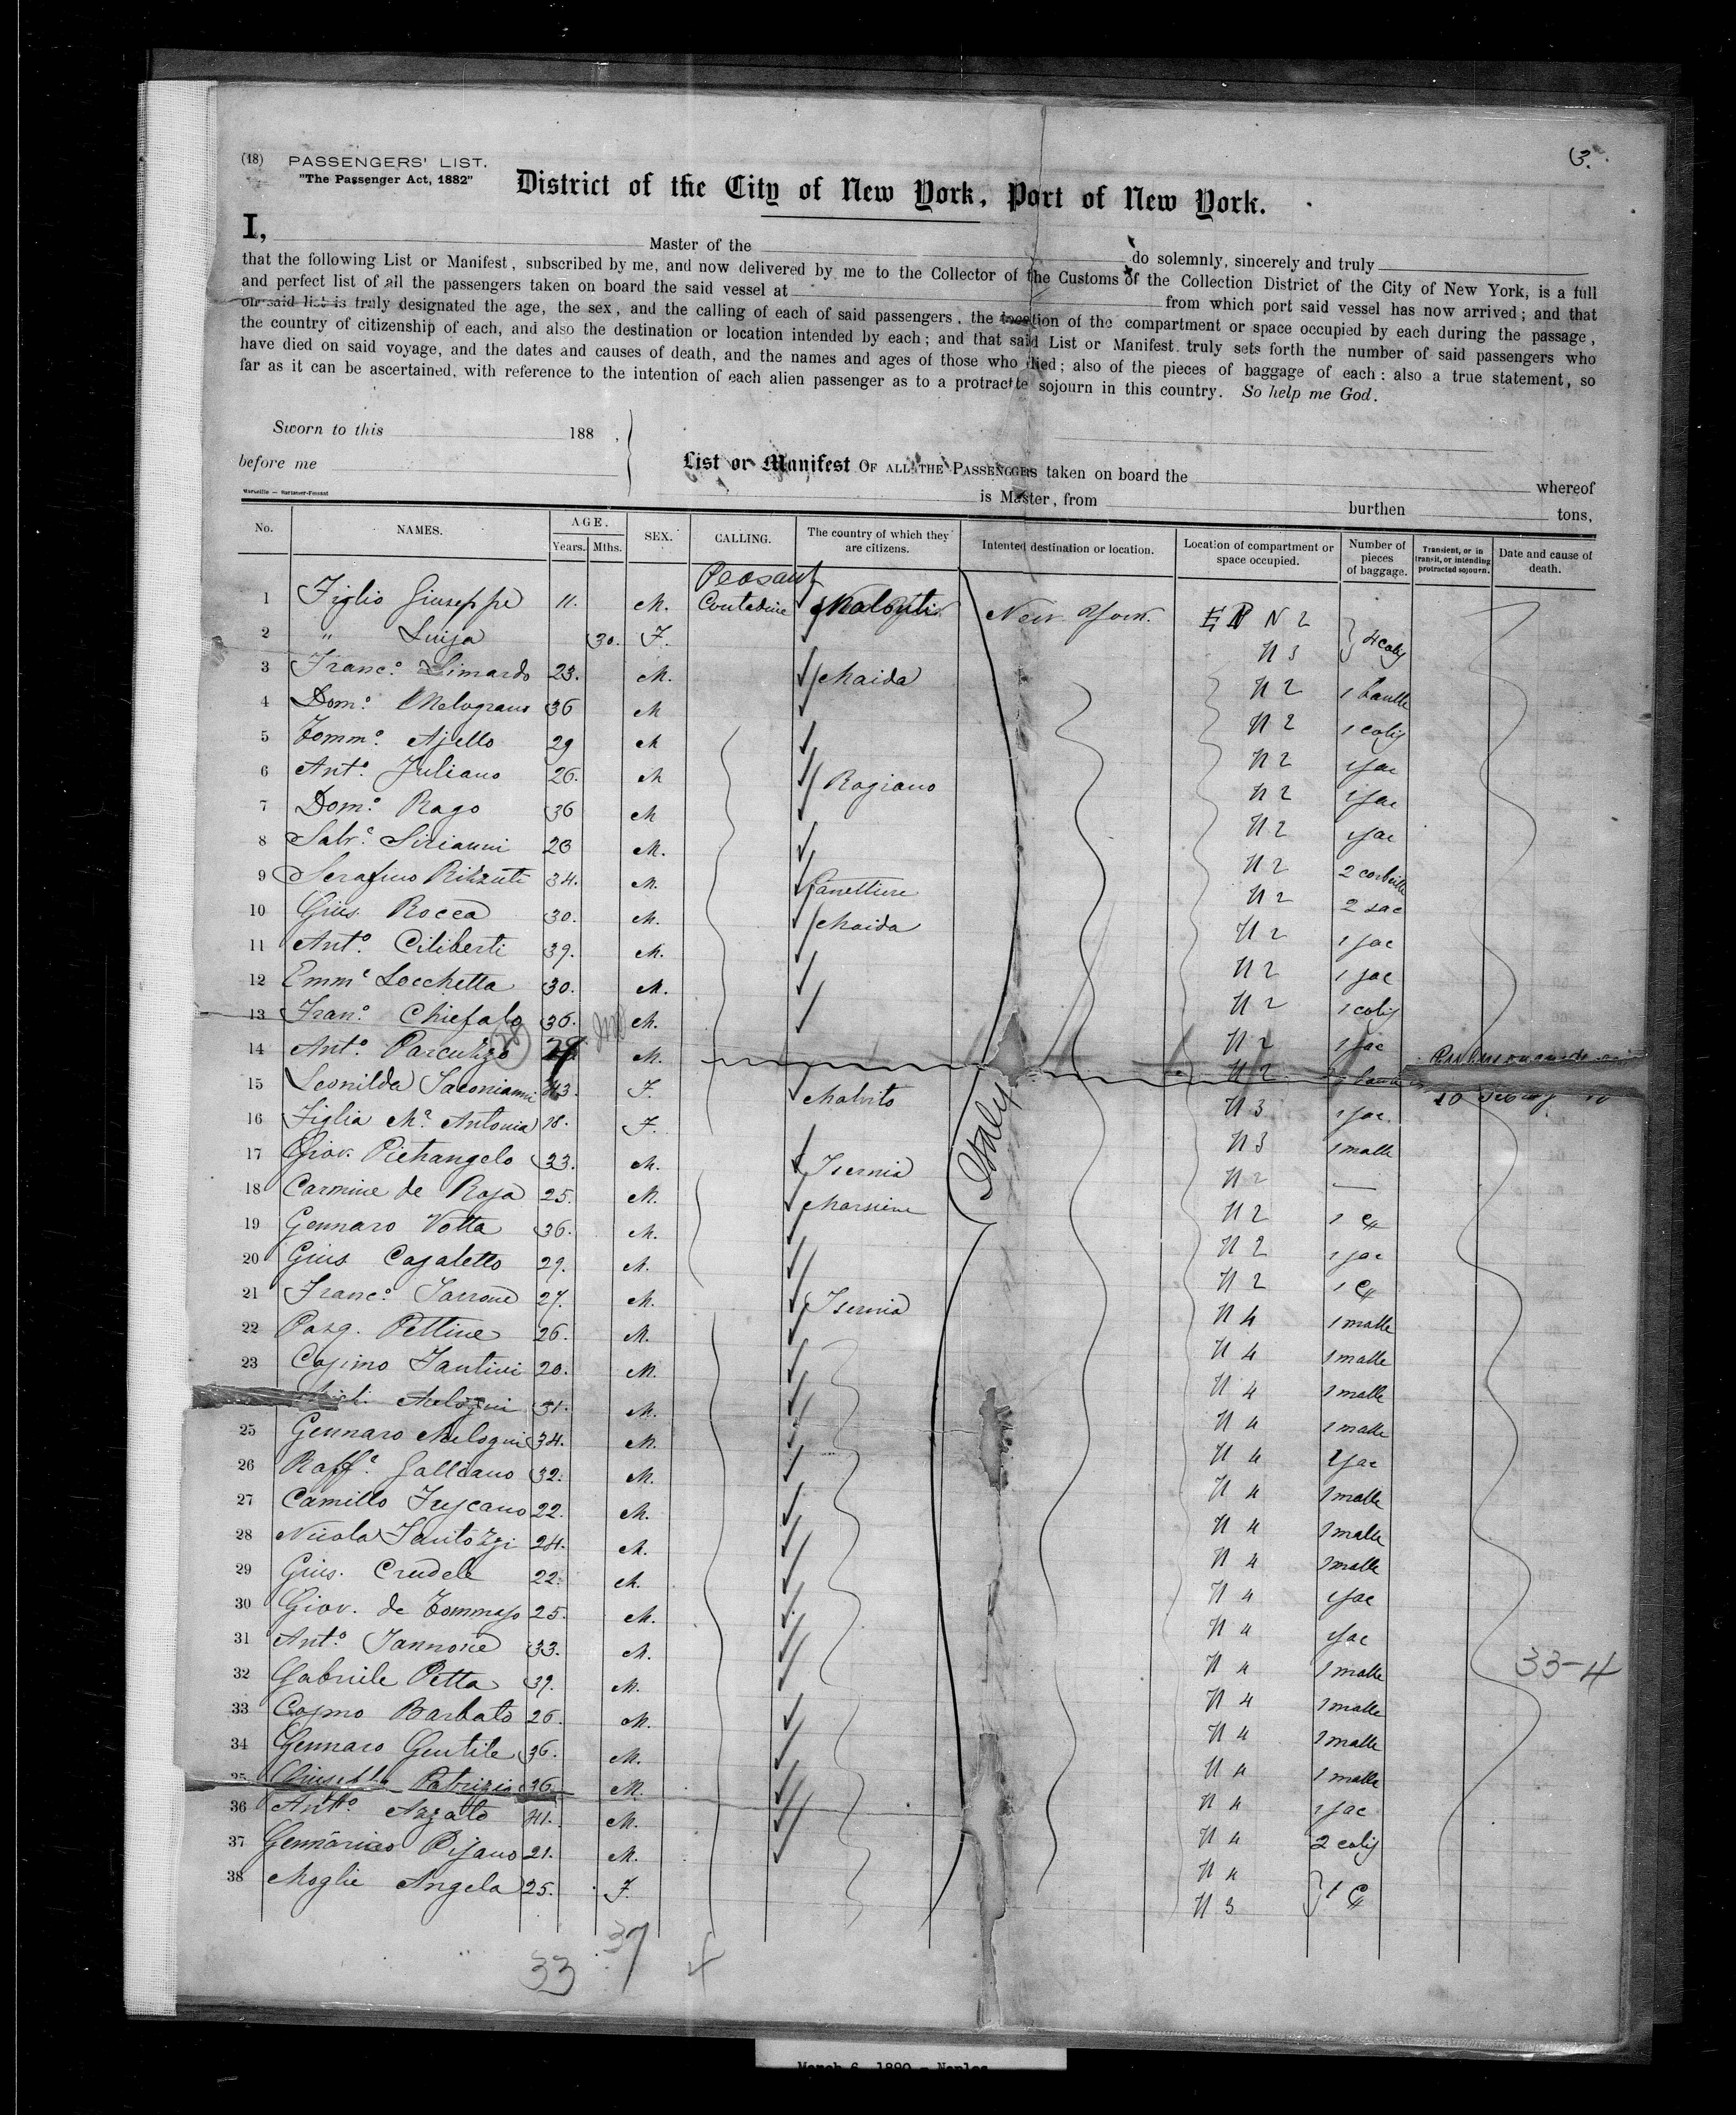 (18) PASSENGERS' LIST.
"The Passenger Act, 1882"
3.
District of the City of New York, Port of New York.
I, Master of the do solemnly, sincerely and truly
that the following List or Manifest, subscribed by me, and now delivered by me to the Collector of the Customs of the Collection District of the City of New York, is a full
and perfect list of all the passengers taken on board the said vessel at from which port said vessel has now arrived; and that
on said list is truly designated the age, the sex, and the calling of each of said passengers, the location of the compartment or space occupied by each during the passage,
the country of citizenship of each, and also the destination or location intended by each; and that said List or Manifest truly sets forth the number of said passengers who
have died on said voyage, and the dates and causes of death, and the names and ages of those who died; also of the pieces of baggage of each: also a true statement, so
far as it can be ascertained, with reference to the intention of each alien passenger as to a protracte sojourn in this country. So help me God.
Sworn to this 188 ,
before me
List or Manifest OF ALL THE PASSENGERS taken on board the whereof
is Master, from burthen tons,
No. NAMES. AGE. Years. Mths. SEX. CALLING. The country of which they are citizens. Intented destination or location. Location of compartment or space occupied. Number of pieces of baggage. Transient, or in transit, or intending protracted sojourn. Date and cause of death.
Peasant
1 Figlio Giuseppe 11. M. Contadine New York. N 2
2 " Luiza 30. F. N 3 4 colis
3 Franc.º Limardo 23. M. Maida N 2
4 Dom.º Melograno 36 M N 2 1 colis
5 Tomm.º Ajello 29 M N 2 1 sac
6 Ant.º Juliano 26. M Rogiano N 2 1 sac
7 Dom.º Rago 36 M N 2 1 sac
8 Salv.e Sirianni 28 M. N 2 2 corbeille
9 Serafino Rizzuti 34. M. N 2 2 sac
10 Gius. Rocca 30. M. Maida N 2 1 sac
11 Ant.º Ciliberti 39. M. N 2 1 sac
12 Emm.e Locchetta 30. M. N 2 1 colis
13 Fran.º Chiefalo 36. M. N 2 1 sac
14 Ant.º 28 M. N 2
15 Leonilda 43. F. Malvito N 3 1 sac
16 Figlia M.a Antonia 18. F. N 3 1 malle
17 Giov. Pietrangelo 33. M. Isernia N 2 —
18 Carmine de Rosa 25. M. N 2
19 Gennaro Votta 36. M. N 2 1 sac
20 Gius Casaletto 29. M. N 2
21 Franc.º Iarrone 27. M. Isernia N 4 1 malle
22 Pasq. Pettine 26. M. N 4 1 malle
23 Cosimo Santini 20. M. N 4 1 malle
Melogni 31. M. N 4 1 malle
25 Gennaro Melogni 34. M. N 4 1 sac
26 Raff.e Galleano 32. M. N 4 1 malle
27 Camillo 22. M. N 4 1 malle
28 Nicola 24. M. N 4 1 malle
29 Gius. Crudele 22. M. N 4 1 sac
30 Giov. de Tommaso 25. M. N 4 1 sac
31 Ant.º Iannone 33. M. N 4 1 malle
32 Gabriele Petta 39. M. N 4 1 malle
33 Cosmo Barbato 26. M. N 4 1 malle
34 Gennaro Gentile 36. M. N 4 1 malle
35 Giuseppe Patrizio 36 M. N 4 1 sac
36 Ant.º Azzato 41. M. N 4 2 colis
37 Pisano 21. M. N 4
38 Moglie Angela 25. F. N 3
Italy
33-4
37
33 4
March 6, 1890 - Naples